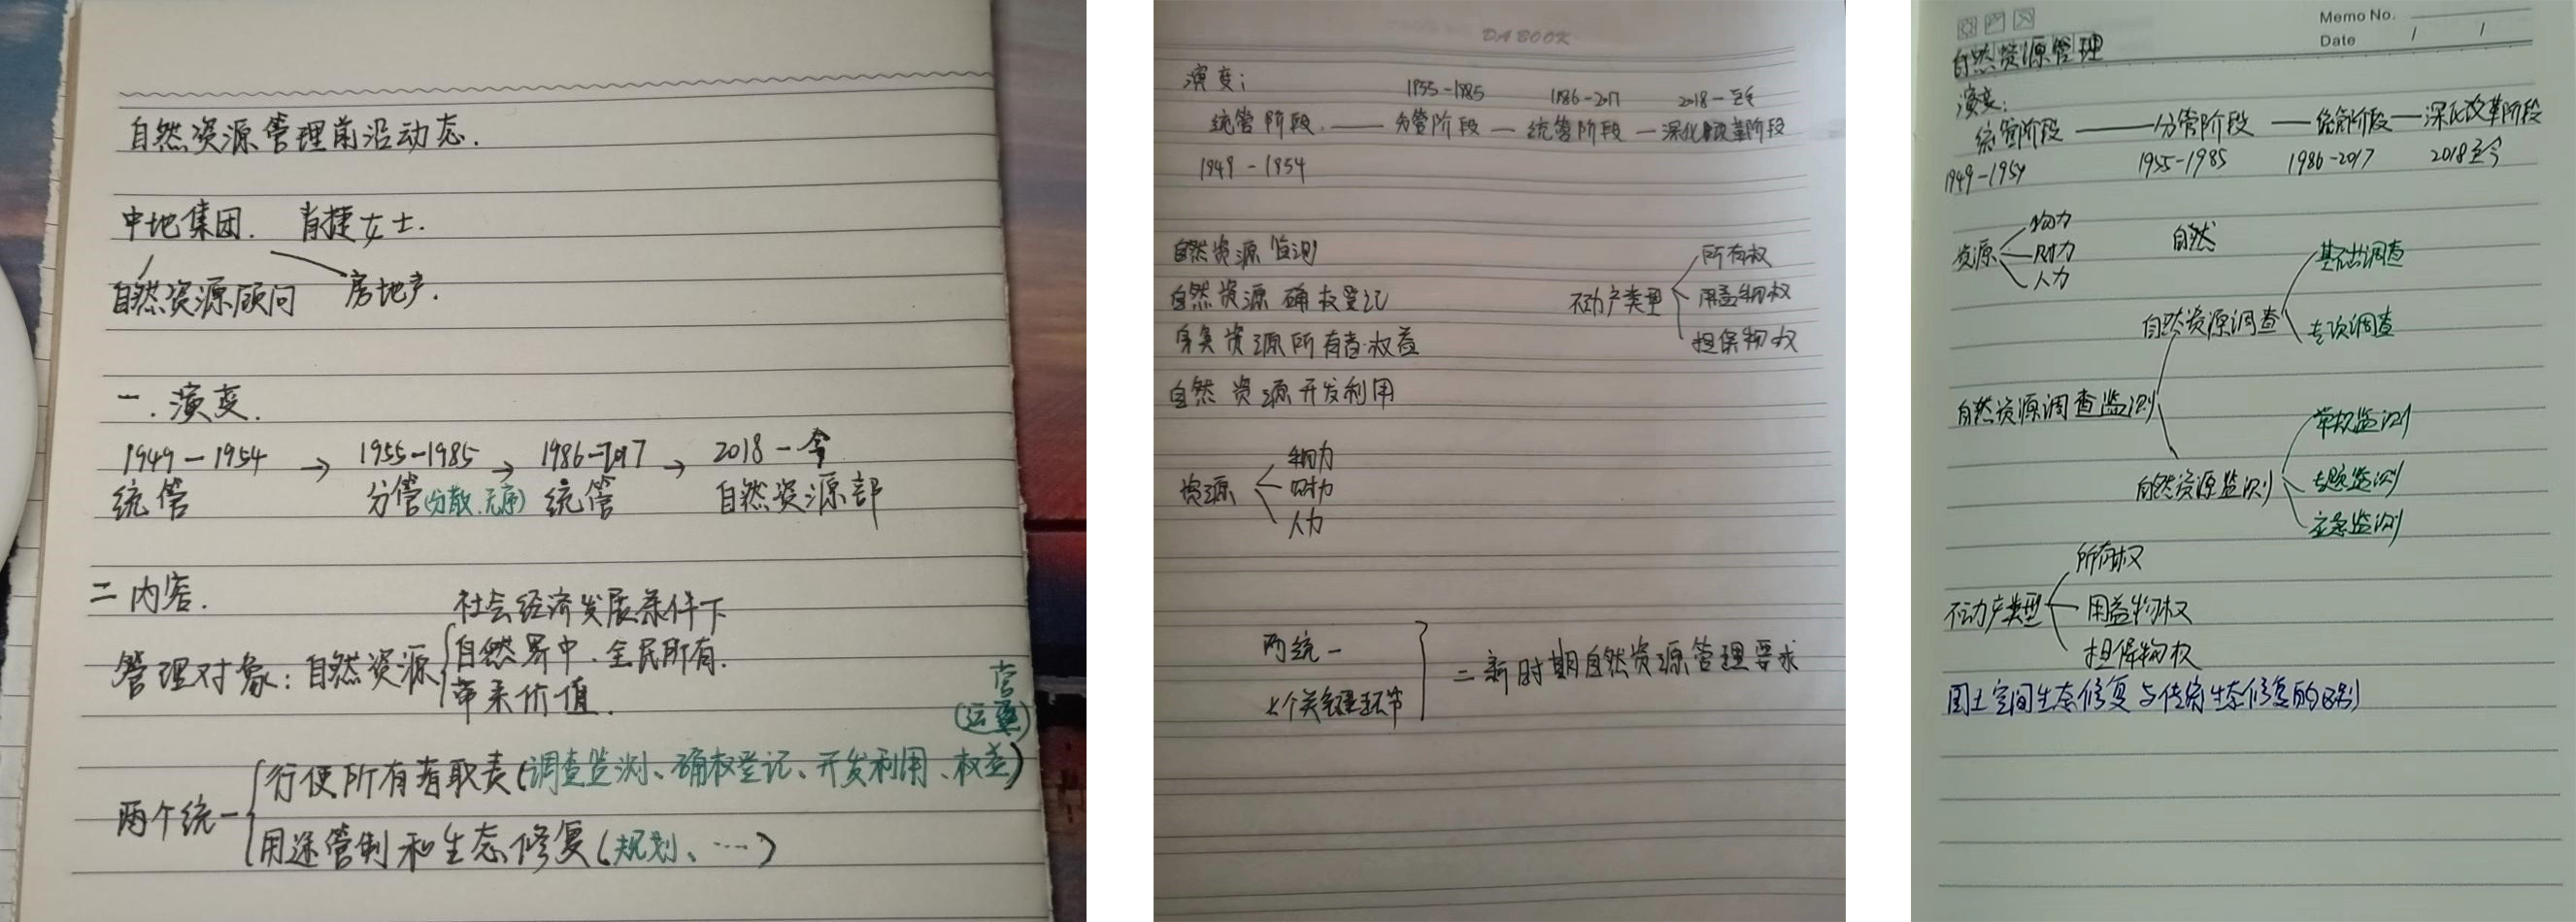 自然资源管理前沿动态.
中地集团. 肖捷女士.
自然资源顾问 房地产.
一. 演变.
1949-1954 → 1955-1985 → 1986-2017 → 2018-今
统管 分管(分散.无序) 统管 自然资源部
二 内容.
社会经济发展条件下
管理对象: 自然资源 自然界中.全民所有.
带来价值.
营
(运)
行使所有者职责(调查监测、确权登记、开发利用、权益)
两个统一
用途管制和生态修复(规划、……)
DA BOOK
演变:
1955-1985 1986-2017 2018-至今
统管阶段 —— 分管阶段 — 统管阶段 — 深化改革阶段
1949-1954
自然资源监测
自然资源确权登记
自然资源所有者权益
自然资源开发利用
不动产类型
所有权
用益物权
担保物权
资源
物力
财力
人力
两统一
七个关键环节
= 新时期自然资源管理要求
Memo No.
Date / /
自然资源管理
演变:
统管阶段 —— 分管阶段 — 统管阶段 — 深化改革阶段
1949-1954 1955-1985 1986-2017 2018至今
资源
物力
财力
人力
自然
自然资源调查监测
自然资源调查
基础调查
专项调查
自然资源监测
常规监测
专题监测
应急监测
不动产类型
所有权
用益物权
担保物权
国土空间生态修复与传统生态修复的区别